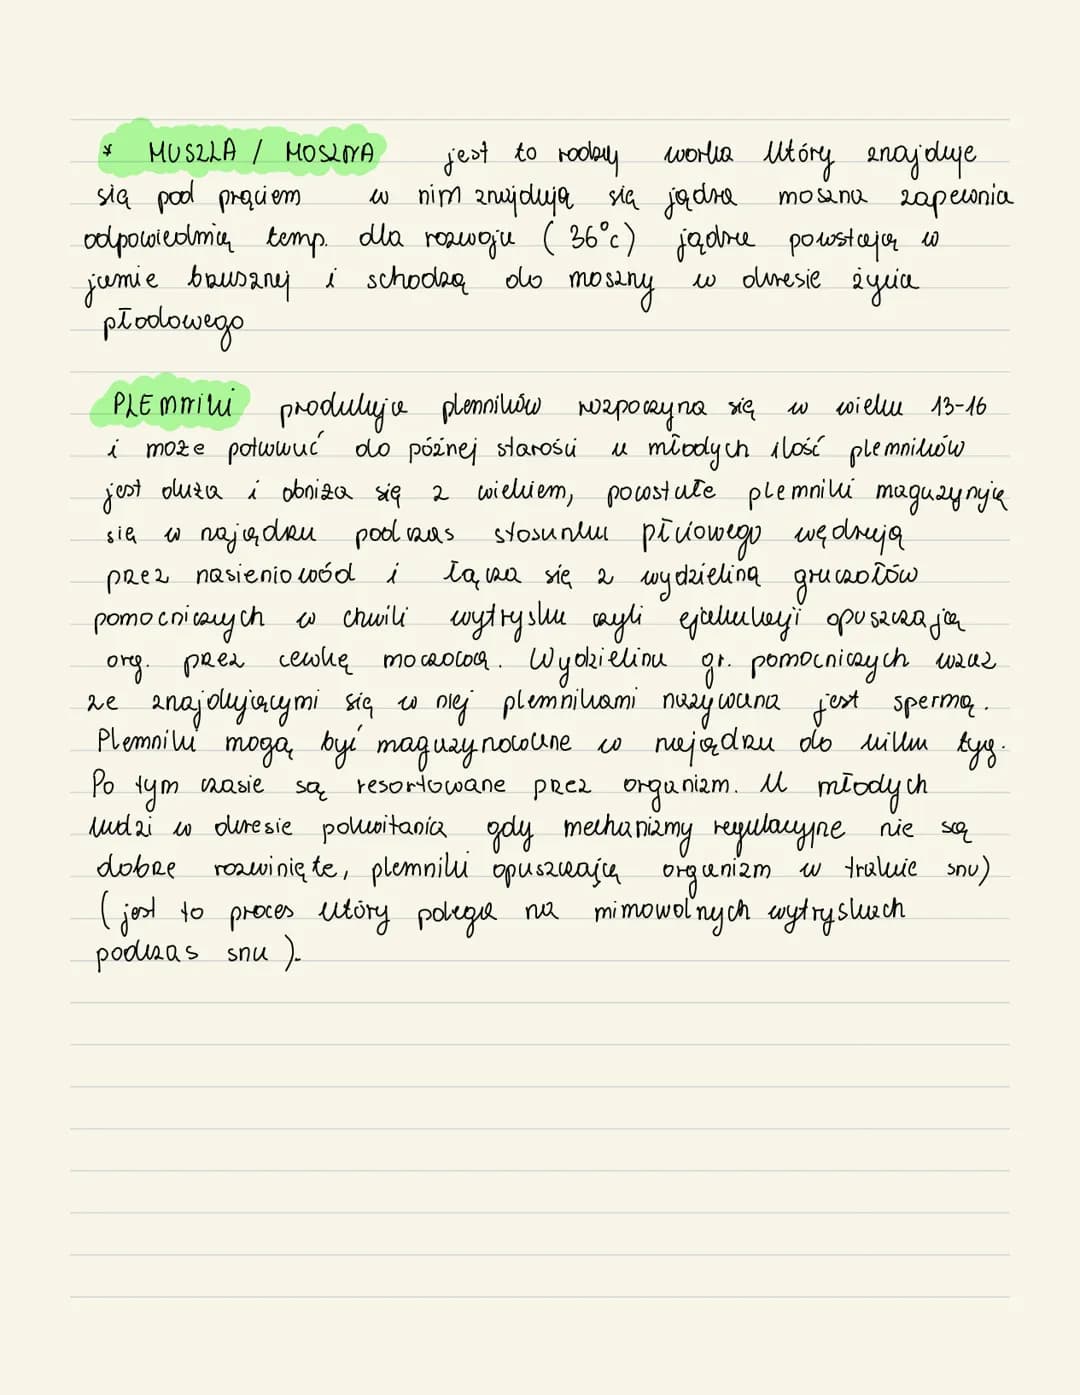 * MUSZLA / MOSZNA jest to rodzaj worka który znajduje
się pod prąciem w nim znajdują się jądra moszna zapewnia
odpowiednią temp. dla rozwoju (36°c) jądra powstają w
jamie brzusznej i schodzą do moszny w okresie życia
płodowego
PLEMNIKI produkcja plemników rozpoczyna się w wieku 13-16
i może potrwać do późnej starości u młodych ilość plemników
jest duża i obniża się z wiekiem, pozostałe plemniki magazynują
się w najądrzu podczas stosunku płciowego wędrują
przez nasieniowód i łączą się z wydzieliną gruczołów
pomocniczych w chwili wytrysku czyli ejakulacji opuszczają
org. przez cewkę moczową. Wydzielina gr. pomocniczych wraz
ze znajdującymi się w niej plemnikami nazywana jest spermą.
Plemniki mogą być magazynowane w najądrzu do kilku tyg.
Po tym czasie są resorbowane przez organizm. U młodych
ludzi w okresie pokwitania gdy mechanizmy regulacyjne nie są
dobrze rozwinięte, plemniki opuszczają organizm w trakcie snu)
(jest to proces który polega na mimowolnych wytryskach
podczas snu).